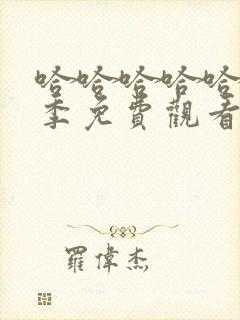 哈哈哈哈哈
季免費觀看
羅偉杰